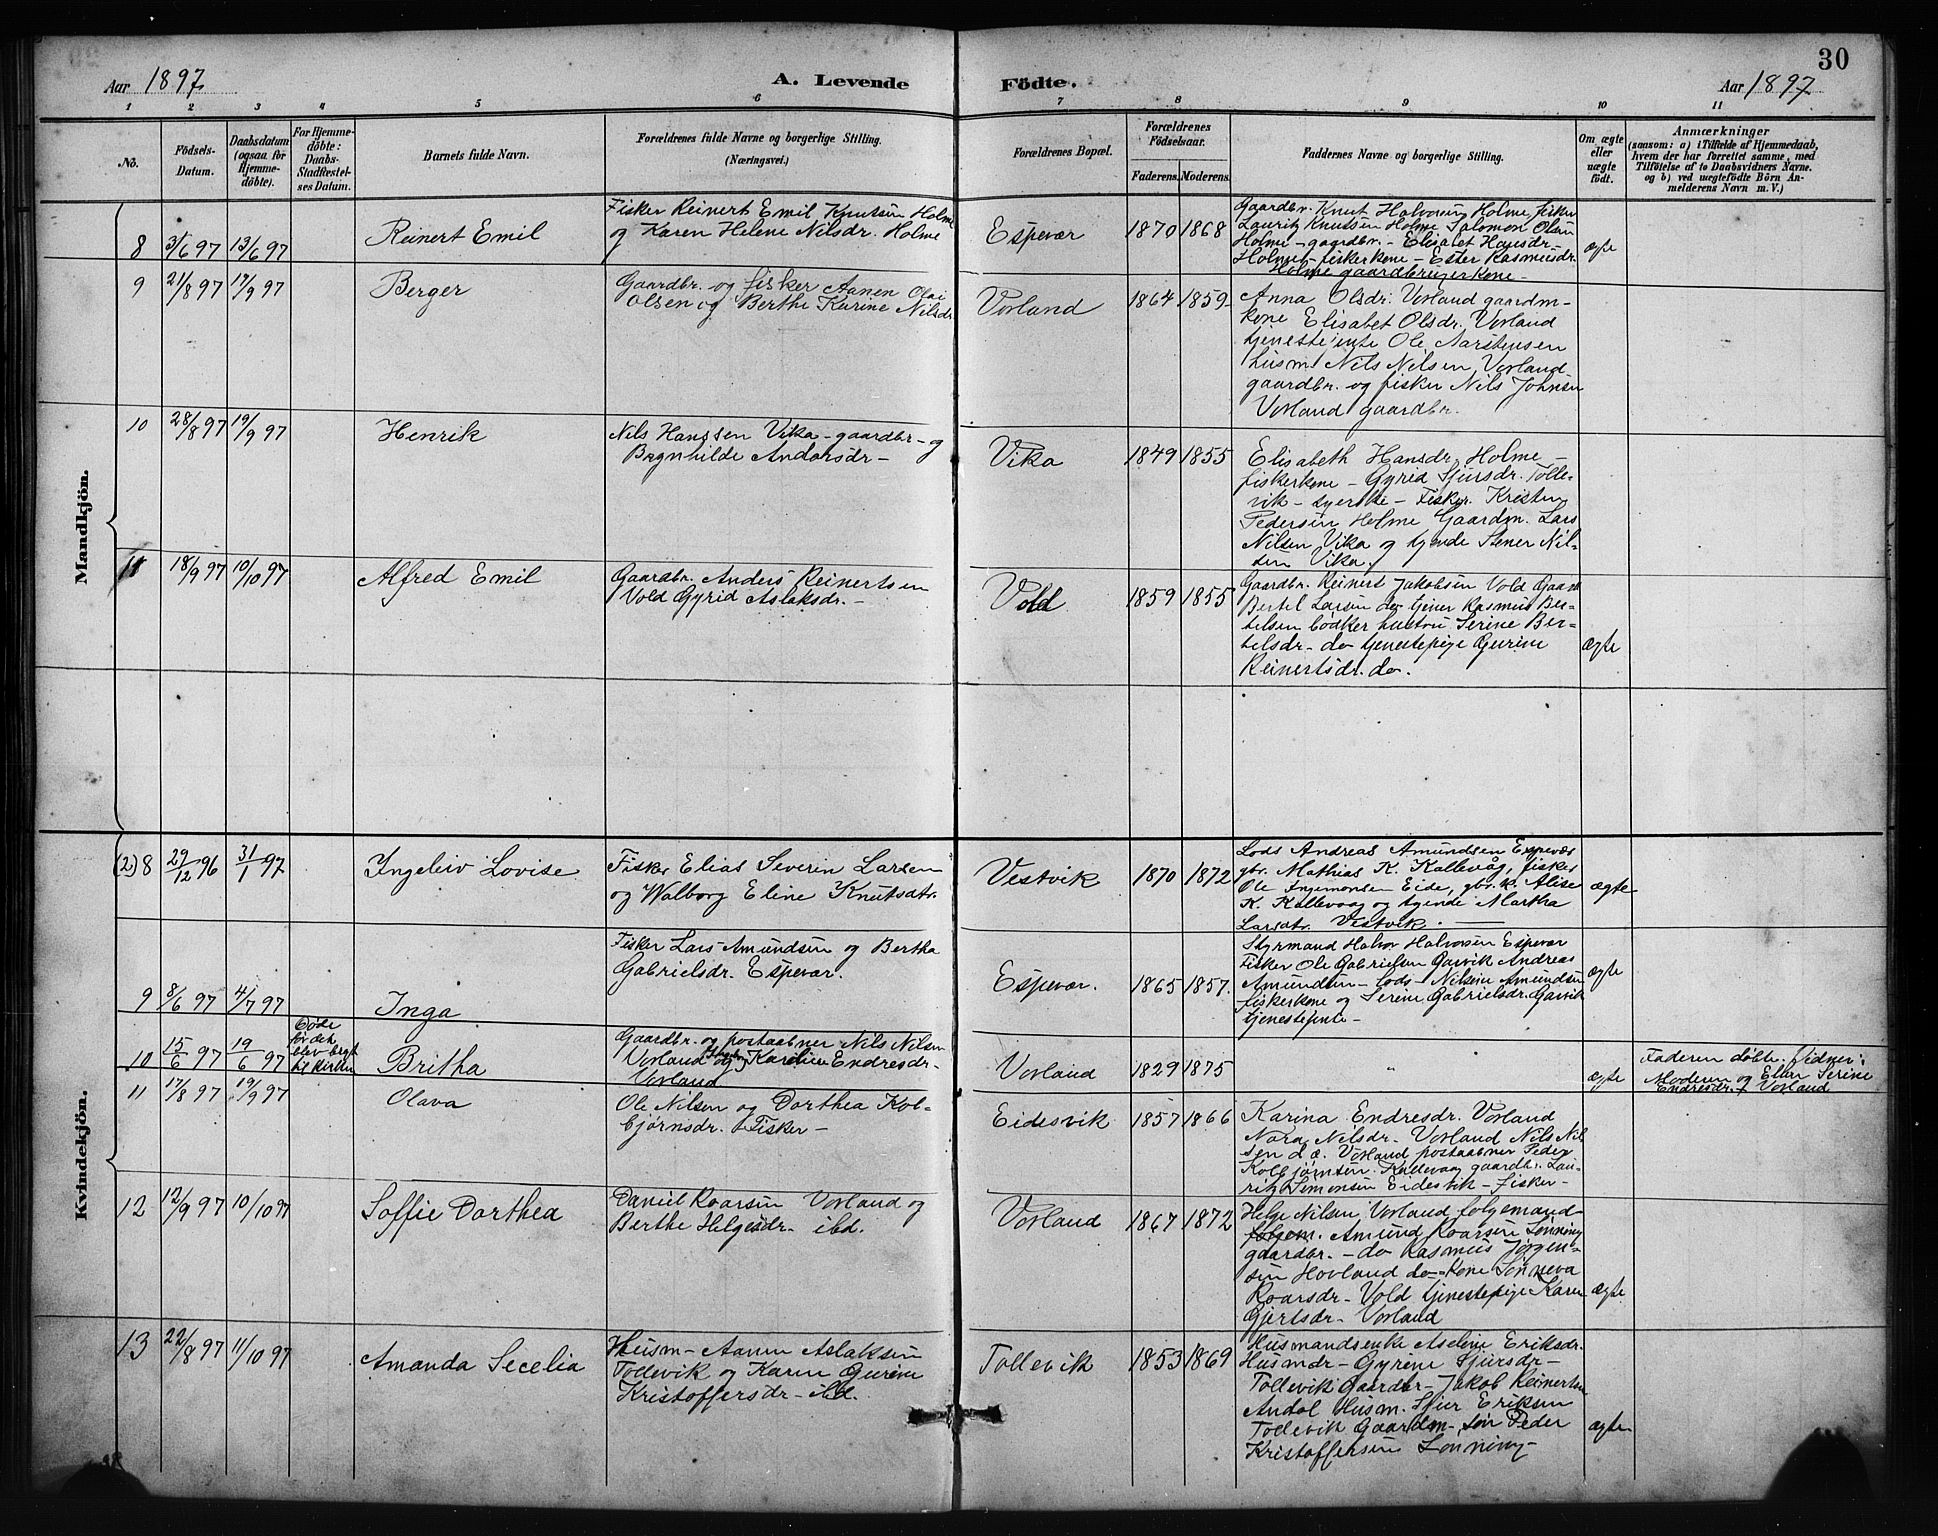 30
Aar 1897.
A. Levende
Födte.
Aar 1897
1 2 3 4 5 6 7 8 9 10 11
No.
Födsels-
Datum.
Daabsdatum
(ogsaa for
Hjemme-
döbte).
For Hjemme-
döbte:
Daabs-
Stadfæstel-
ses Datum.
Barnets fulde Navn.
Forældrenes fulde Navne og borgerlige Stilling.
(Næringsvei.)
Forældrenes Bopæl.
Forældrenes
Födselsaar.
Faderens.
Moderens.
Faddernes Navne og borgerlige Stilling.
Om ægte
eller
uægte
født.
Anmærkninger
(saasom: a) i Tilfælde af Hjemmedaab,
hvem der har forrettet samme, med
Tilføielse af to Daabsvidners Navne.
og b) ved uægtefödte Börn An-
melderens Navn m. V.)
Mandkjön.
8
3/6 97
13/6 97
Reinert Emil
Fisker Reinert Emil Knutsen Holme
og Karen Helene Nilsdr. Holme
Espevær
1870
1868
Gaardbr. Knut Halvorsen Holme, fisker
Lauritz Knutsen Holme Salomon Olsen
Holme - gaardbr. - Elisabet Hansdr.
Holme - fiskerkone - Ester Rasmusdr.
Holme gaardbrugerkone -
ægte
9
21/8 97
17/9 97
Berger
Gaardbr. og fisker Aanen Olai
Olsen og Berthe Karine Nilsdr.
Vorland
1864
1859
Anna Olsdr. Vorland gaardm-
kone Elisabet Olsdr. Vorland
tjenestejente Ole Aarstensen
husm Nils Nilsen Vorland
gaardbr. og fisker Nils Johnsen
Vorland gaardbr.
10
28/8 97
19/9 97
Henrik
Nils Hanssen Vika - gaardbr - og
Brynhilde Andorsdr -
Vika
1849
1855
Elisabeth Hansdr. Holme -
fiskerkone - Gyrid Sjursdr. Tolle-
vik - syerske - Fisker Kristen
Pedersen Holme Gaardm. Lars
Nilsen Vika og tyende Stener Nil-
sen Vika.
11
18/9 97
10/10 97
Alfred Emil
Gaardbr. Anders Reinertsen
Vold Gyrid Aslaksdr. -
Vold
1859
1855
Gaardbr. Reinert Jakobsen Vold Gaardb
Bertel Larsen do tjener Rasmus Ber-
telsen bødker hustru Serine Ber-
telsdr - do tjenestepige Gurine
Reinertsdr. do.
ægte
Kvindekjön.
(2) 8
29/12 96
31/1 97
Ingeleiv Lovise
Fisker Elias Severin Larsen
og Walborg Eline Knutsdtr.
Vestvik
1870
1872
Lods Andreas Amundsen Espevær
gbr. Mathias K. Kallevåg, fisker
Ole Ingemonsen Eide, gbr. k. Alise
K. Kallevaag og tyende Martha
Larsdtr. Vestvik.
ægte
9
8/6 97
4/7 97
Inga
Fisker Lars Amundsen og Bertha
Gabrielsdr. Espevær.
Espevær.
1865
1857.
Styrmand Halvor Halvorsen Espevær
Fisker Ole Gabrielsen Gasvik Andreas
Amundsen - lods - Nilsine Amundsen
fiskerkone og Serine Gabrielsdr. Gasvik
tjenestejente -
ægte
10
15/6 97
19/6 97
Døde
før det
blev bragt
til kirken
Britha
Gaardbr. og postaabner Nils Nilsen
Vorland og Karine Endresdr-
Vorland
Vorland
1829
1875
"
ægte
Faderen døbte. Vidner:
Moderen og Elen Serine
Endresdr. Vorland
11
17/8 97
19/9 97
Olava
Ole Nilsen og Dorthea Kol-
bjørnsdr. Fisker -
Eidesvik
1857
1866
Karina Endresdr. Vorland
Nora Nilsdr. Vorland Nils Nil
sen d. æ. Vorland postaabner Peder
Kolbjørnsen Kallevaag gaardbr. Lau-
ritz Simonsen Eidesvik - fisker -
12
12/9 97
10/10 97
Soffie Dorthea
Daniel Roarsen Vorland og
Berthe Helgesdr - ibd.
Vorland
1867
1872
Helge Nilsen Vorland følgemand
følgem. Amund Roarsen Lønning
gaardbr. - do Rasmus Jørgen-
sen Hovland do - kone Sønneva
Roarsdr - Vold tjenestepige Karen
Gjertsdr - Vorland
ægte
13
22/8 97
11/10 97
Amanda Secelia
Husm - Aanen Aslaksen
Tollevik og Karen Gurine
Kristoffersdr - ibd.
Tollevik
1853
1869
Husmandsenke Aselene Eriksdr.
Husmdr - Gyrene Sjursdr -
Tollevik Gaardbr - Jakob Reinertsen
Andal Husm. Sjur Eriksen
Tollevik Gaardm - søn Peder
Kristoffersen Lønning -
ægte